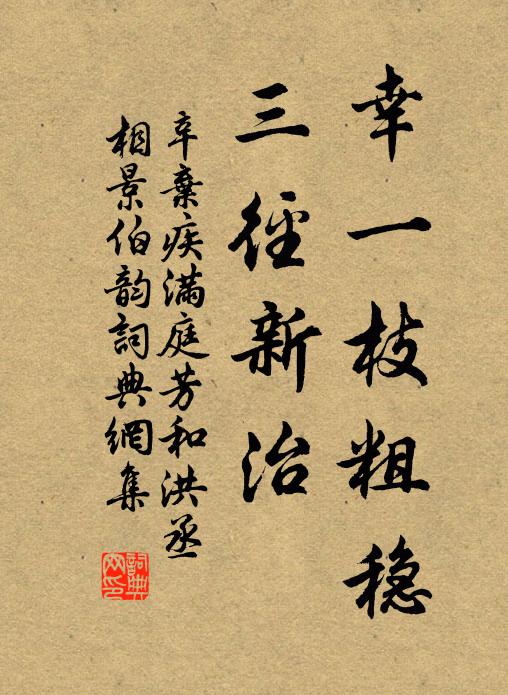 幸一枝粗稳
三徑新治
辛棄疾滿庭芳和洪丞
相景伯韵詞典網集
詞典网印